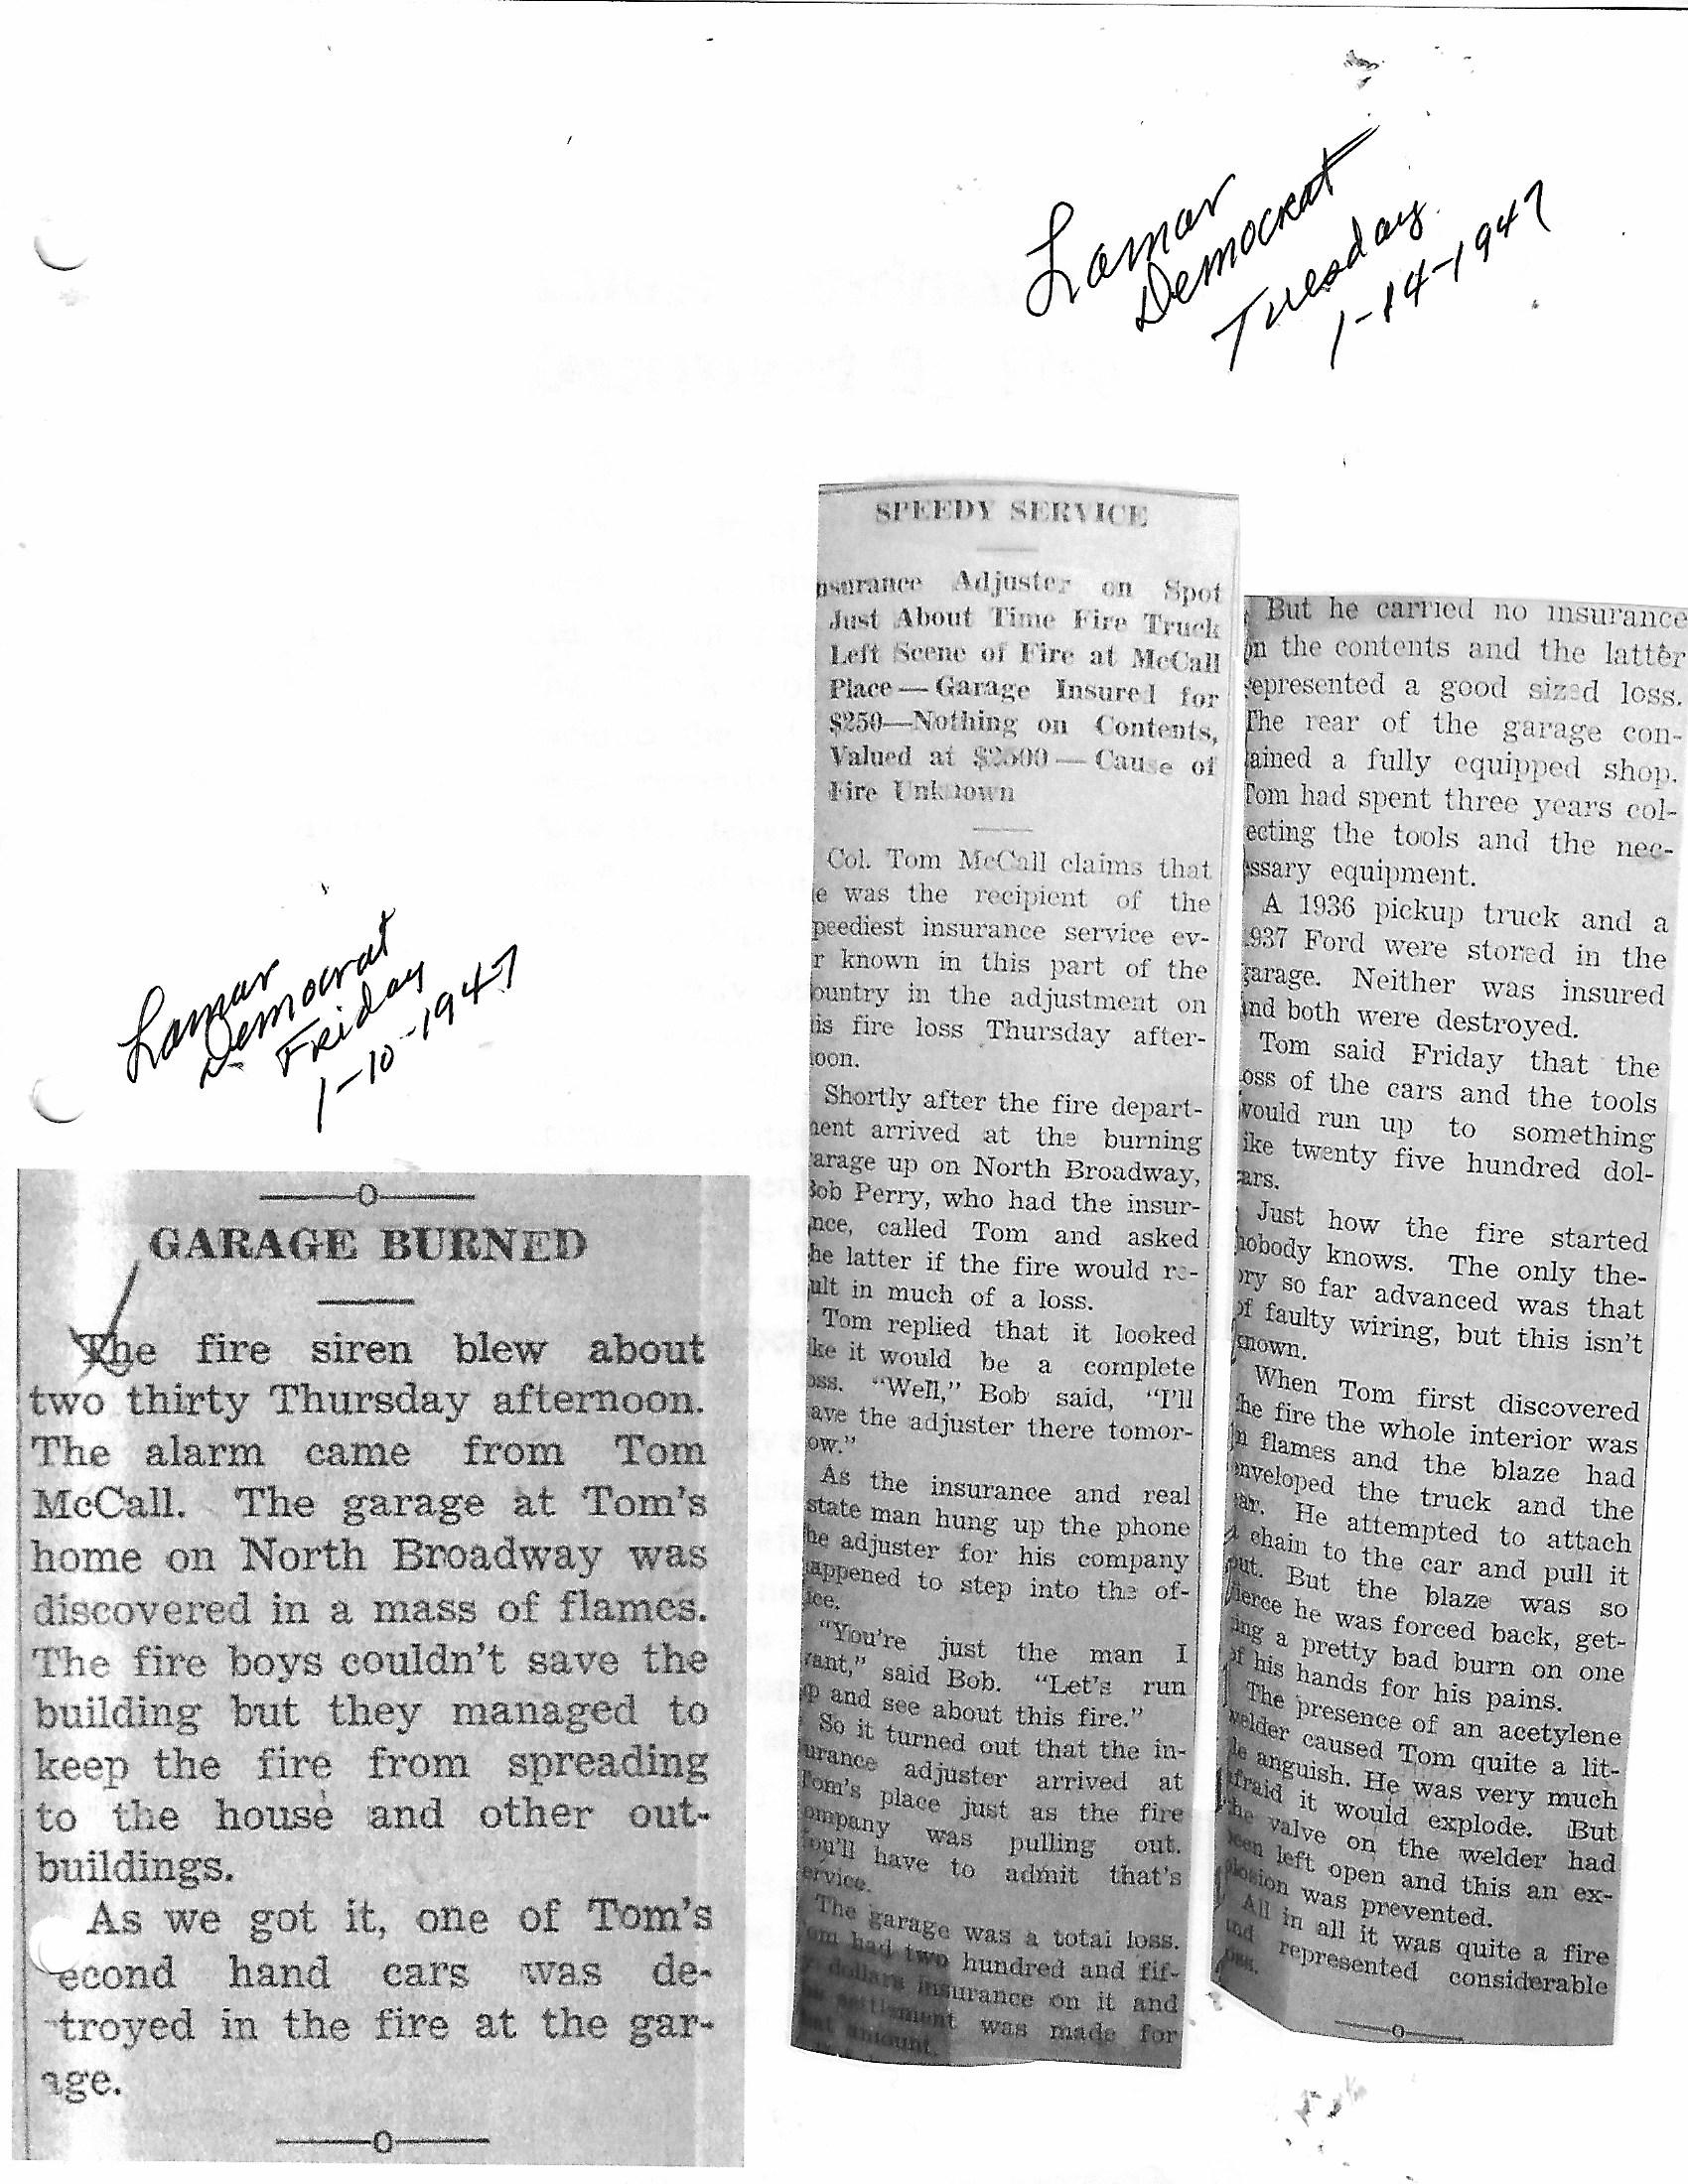 Lamar
Democrat
Tuesday
1-14-1947
Lamar
Democrat
Friday
1-10-1947
GARAGE BURNED
The fire siren blew about
two thirty Thursday afternoon.
The alarm came from Tom
McCall. The garage at Tom's
home on North Broadway was
discovered in a mass of flames.
The fire boys couldn't save the
building but they managed to
keep the fire from spreading
to the house and other out-
buildings.
As we got it, one of Tom's
econd hand cars was de-
troyed in the fire at the gar-
age.
SPEEDY SERVICE
nsurance Adjuster on Spot
Just About Time Fire Truck
Left Scene of Fire at McCall
Place — Garage Insured for
$250—Nothing on Contents,
Valued at $2500 — Cause of
Fire Unknown
Col. Tom McCall claims that
e was the recipient of the
peediest insurance service ev-
r known in this part of the
ountry in the adjustment on
is fire loss Thursday after-
oon.
Shortly after the fire depart-
ment arrived at the burning
arage up on North Broadway,
Bob Perry, who had the insur-
nce, called Tom and asked
he latter if the fire would re-
ult in much of a loss.
Tom replied that it looked
ike it would be a complete
oss. "Well," Bob said, "I'll
ave the adjuster there tomor-
ow."
As the insurance and real
state man hung up the phone
he adjuster for his company
appened to step into the of-
ice.
"You're just the man I
want," said Bob. "Let's run
up and see about this fire."
So it turned out that the in-
urance adjuster arrived at
Tom's place just as the fire
ompany was pulling out.
You'll have to admit that's
ervice.
The garage was a total loss.
Tom had two hundred and fif-
y dollars insurance on it and
he settlement was made for
hat amount.
But he carried no insurance
on the contents and the latter
represented a good sized loss.
The rear of the garage con-
tained a fully equipped shop.
Tom had spent three years col-
ecting the tools and the nec-
essary equipment.
A 1936 pickup truck and a
1937 Ford were stored in the
garage. Neither was insured
and both were destroyed.
Tom said Friday that the
oss of the cars and the tools
would run up to something
ike twenty five hundred dol-
lars.
Just how the fire started
nobody knows. The only the-
ory so far advanced was that
of faulty wiring, but this isn't
known.
When Tom first discovered
the fire the whole interior was
in flames and the blaze had
enveloped the truck and the
car. He attempted to attach
a chain to the car and pull it
out. But the blaze was so
fierce he was forced back, get-
ting a pretty bad burn on one
of his hands for his pains.
The presence of an acetylene
welder caused Tom quite a lit-
tle anguish. He was very much
afraid it would explode. But
the valve on the welder had
been left open and this an ex-
plosion was prevented.
All in all it was quite a fire
and represented considerable
loss.